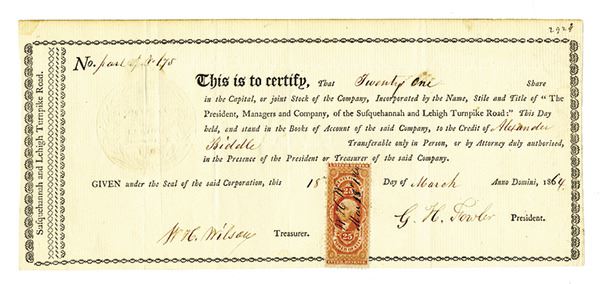 2928
No. part of No 175
This is to certify, That Twenty One Share
in the Capital, or joint Stock of the Company, Incorporated by the Name, Stile and Title of "The
President, Managers and Company, of the Sufquehannah and Lehigh Turnpike Road:" This Day
held, and stand in the Books of Account of the said Company, to the Credit of Alexander
Biddle Transferable only in Person, or by Attorney duly authorised,
in the Presence of the President or Treasurer of the said Company.
GIVEN under the Seal of the said Corporation, this 18 Day of March Anno Domini, 1864.
W. H. Wilson Treasurer.
G. H. Fowler President.
Sufquehannah and Lehigh Turnpike Road.
25
25